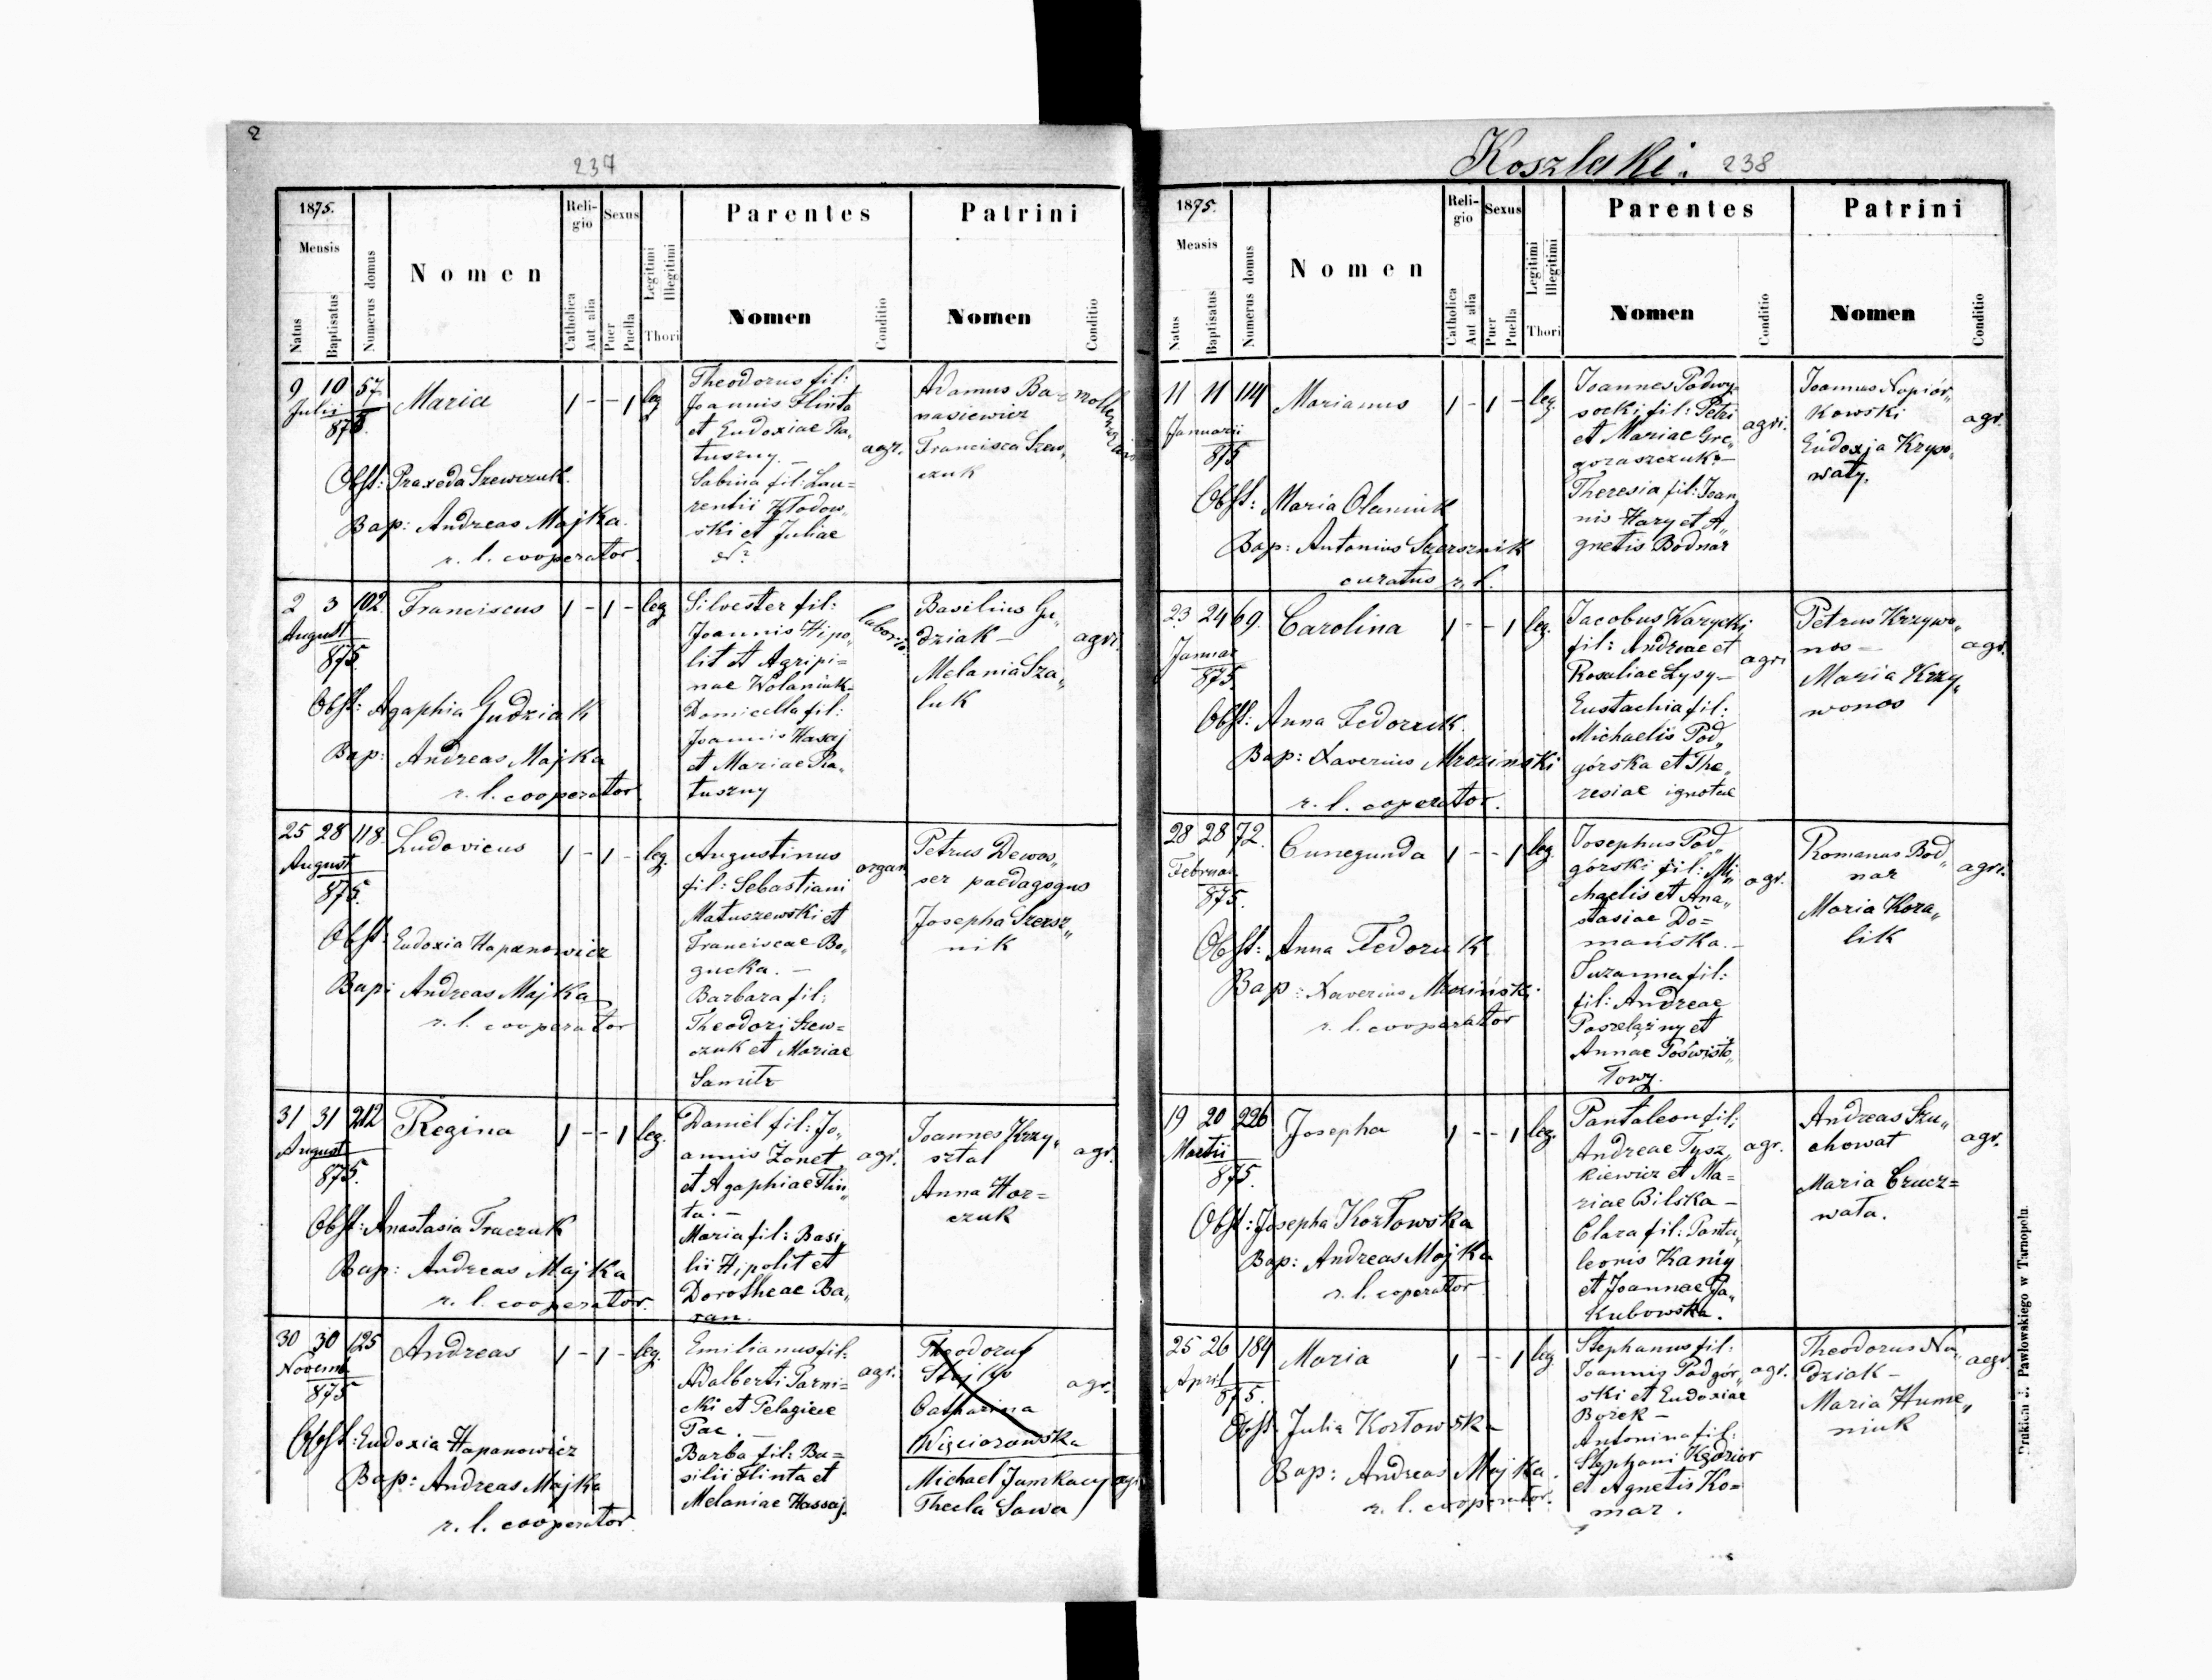 2
237
1875.
Mensis
Natus
Baptisatus
Numerus domus
Nomen
Reli-
gio
Catholica
Aut alia
Sexus
Puer
Puella
Legitimi
Illegitimi
Thori
Parentes
Nomen
Conditio
Patrini
Nomen
Conditio
9 10 57. Maria 1 - - 1 leg
Julii
875.
Obst: Praxeda Szewczuk.
Bap: Andreas Majka.
r. l. cooperator.
Theodorus fil:
Joannis Flinta
et Eudoxiae Ra„
tuszny. —
Sabina fil: Lau=
rentii Kłodow„
ski et Juliae
N?
agr.
Adamus Ba=
nasiewicz
Francisca Szew„
czuk
2 3 102. Franciscus 1 - 1 - leg
August
875
Obst: Agaphia Gudziak
Bap: Andreas Majka
r. l. cooperator.
Silvester fil:
Joannis Hipo„
lit et Agripi=
nae Wolaniuk-
Domicella fil:
Joannis Hasaj
et Mariae Ra„
tuszny
Basilius Gu„
dziak —
Melania Sza„
luk
agri.
25 28 118. Ludovicus 1 - 1 - leg.
August
875.
Obst: Eudoxia Hapanowicz
Bap: Andreas Majka
r. l. cooperator
Augustinus
fil: Sebastiani
Matuszewski et
Franciscae Bo„
gucka. —
Barbara fil:
Theodori Szew=
czuk et Mariae
organ
Petrus Dewos„
ser paedagogus
Josepha Szersz„
nik
31 31 212 Regina 1 - - 1 leg.
August
875.
Obst: Anastasia Traczuk
Bap: Andreas Majka
r. l. cooperator.
Daniel fil: Jo„
annis Żonet
et Agaphiae Flin„
ta. —
Maria fil: Basi„
lii Hipolit et
Dorotheae Ba„
ran.
agr.
Joannes Krzy„
sztal
Anna Hor=
czuk
agr.
30 30 125 Andreas 1 - 1 - leg.
Novemb
875
Obst: Eudoxia Hapanowicz
Bap: Andreas Majka
r. l. cooperator.
Emilianus fil:
Adalberti Tarni=
cki et Pelagiae
Pac. —
Barba fil: Ba=
silii Flinta et
Melaniae Hassaj.
agr.
Theodorus
Stojko
Catharina
Więciorowska
agr.
Michael Jumkacy agr
Thecla Sawa
Koszlaki. 238
1875.
Mensis
Natus
Baptisatus
Numerus domus
Nomen
Reli-
gio
Catholica
Aut alia
Sexus
Puer
Puella
Legitimi
Illegitimi
Thori
Parentes
Nomen
Conditio
Patrini
Nomen
Conditio
11 11 114 Marianus 1 - 1 - leg.
Januarii
875
Obst: Maria Olaniuk
Bap: Antonius Szersznik
curatus r. l.
Joannes Podwy„
socki fil: Petri
et Mariae Gre„
goraszczuk. —
Theresia fil: Joan„
nis Hary et A„
gnetis Bodnar
agri.
Joannes Napiór„
kowski
Eudoxja Krzyw„
waty.
agr.
23 24 69. Carolina 1 - - 1 leg.
Januar
875.
Obst: Anna Fedoruk.
Bap: Xaverius Mroziński
r. l. coperator.
Jacobus Warycki
fil: Andreae et
Rosaliae Łysy —
Eustachia fil:
Michaelis Pod„
górska et The„
resiae ignotae
agri
Petrus Krzywo„
nos —
Maria Krzy„
wonos
agr.
28 28 72. Cunegunda 1 - - 1 leg.
Februar
875.
Obst: Anna Fedoruk.
Bap: Xaverius Mroziński
r. l. cooperator
Josephus Pod„
górski fil: Mi„
chaelis et Ana„
stasiae Do=
mańska. —
Suzanna fil:
fil: Andreae
Poszelążny et
Annae Poświsto„
towy.
agr.
Romanus Bod„
nar
Maria Kora„
lik
agri.
19 20 226 Josepha 1 - - 1 leg.
Martii
875.
Obst: Josepha Kozłowska
Bap: Andreas Majka
r. l. coperator
Pantaleon fil:
Andreae Tysz„
kiewicz et Ma=
riae Bilska —
Clara fil: Panta„
leonis Kaniy
et Joannae Ja„
kubowska.
agr.
Andreas Szu„
chowat
Maria Crucz=
wata.
agr.
25 26 184 Maria 1 - - 1 leg
April
875.
Obst. Julia Kozłowska
Bap: Andreas Majka.
r. l. cooperator.
Stephanus fil:
Joannis Podgór„
ski et Eudoxiae
Borek —
Antonina fil:
Stephani Kędzior
et Agnetis Ko=
mar.
agr.
Theodorus Na„
dziak —
Maria Hume„
niuk
aegr.
Drukiem J. Pawłowskiego w Tarnopolu.